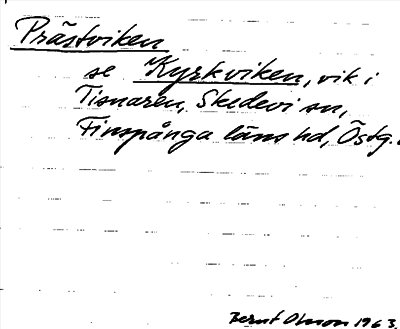 Prästviken
se Kyrkviken, vik i
Tisnaren, Skedevi sn,
Finspånga läns hd, Östg.
Bernt Olsson 1963.